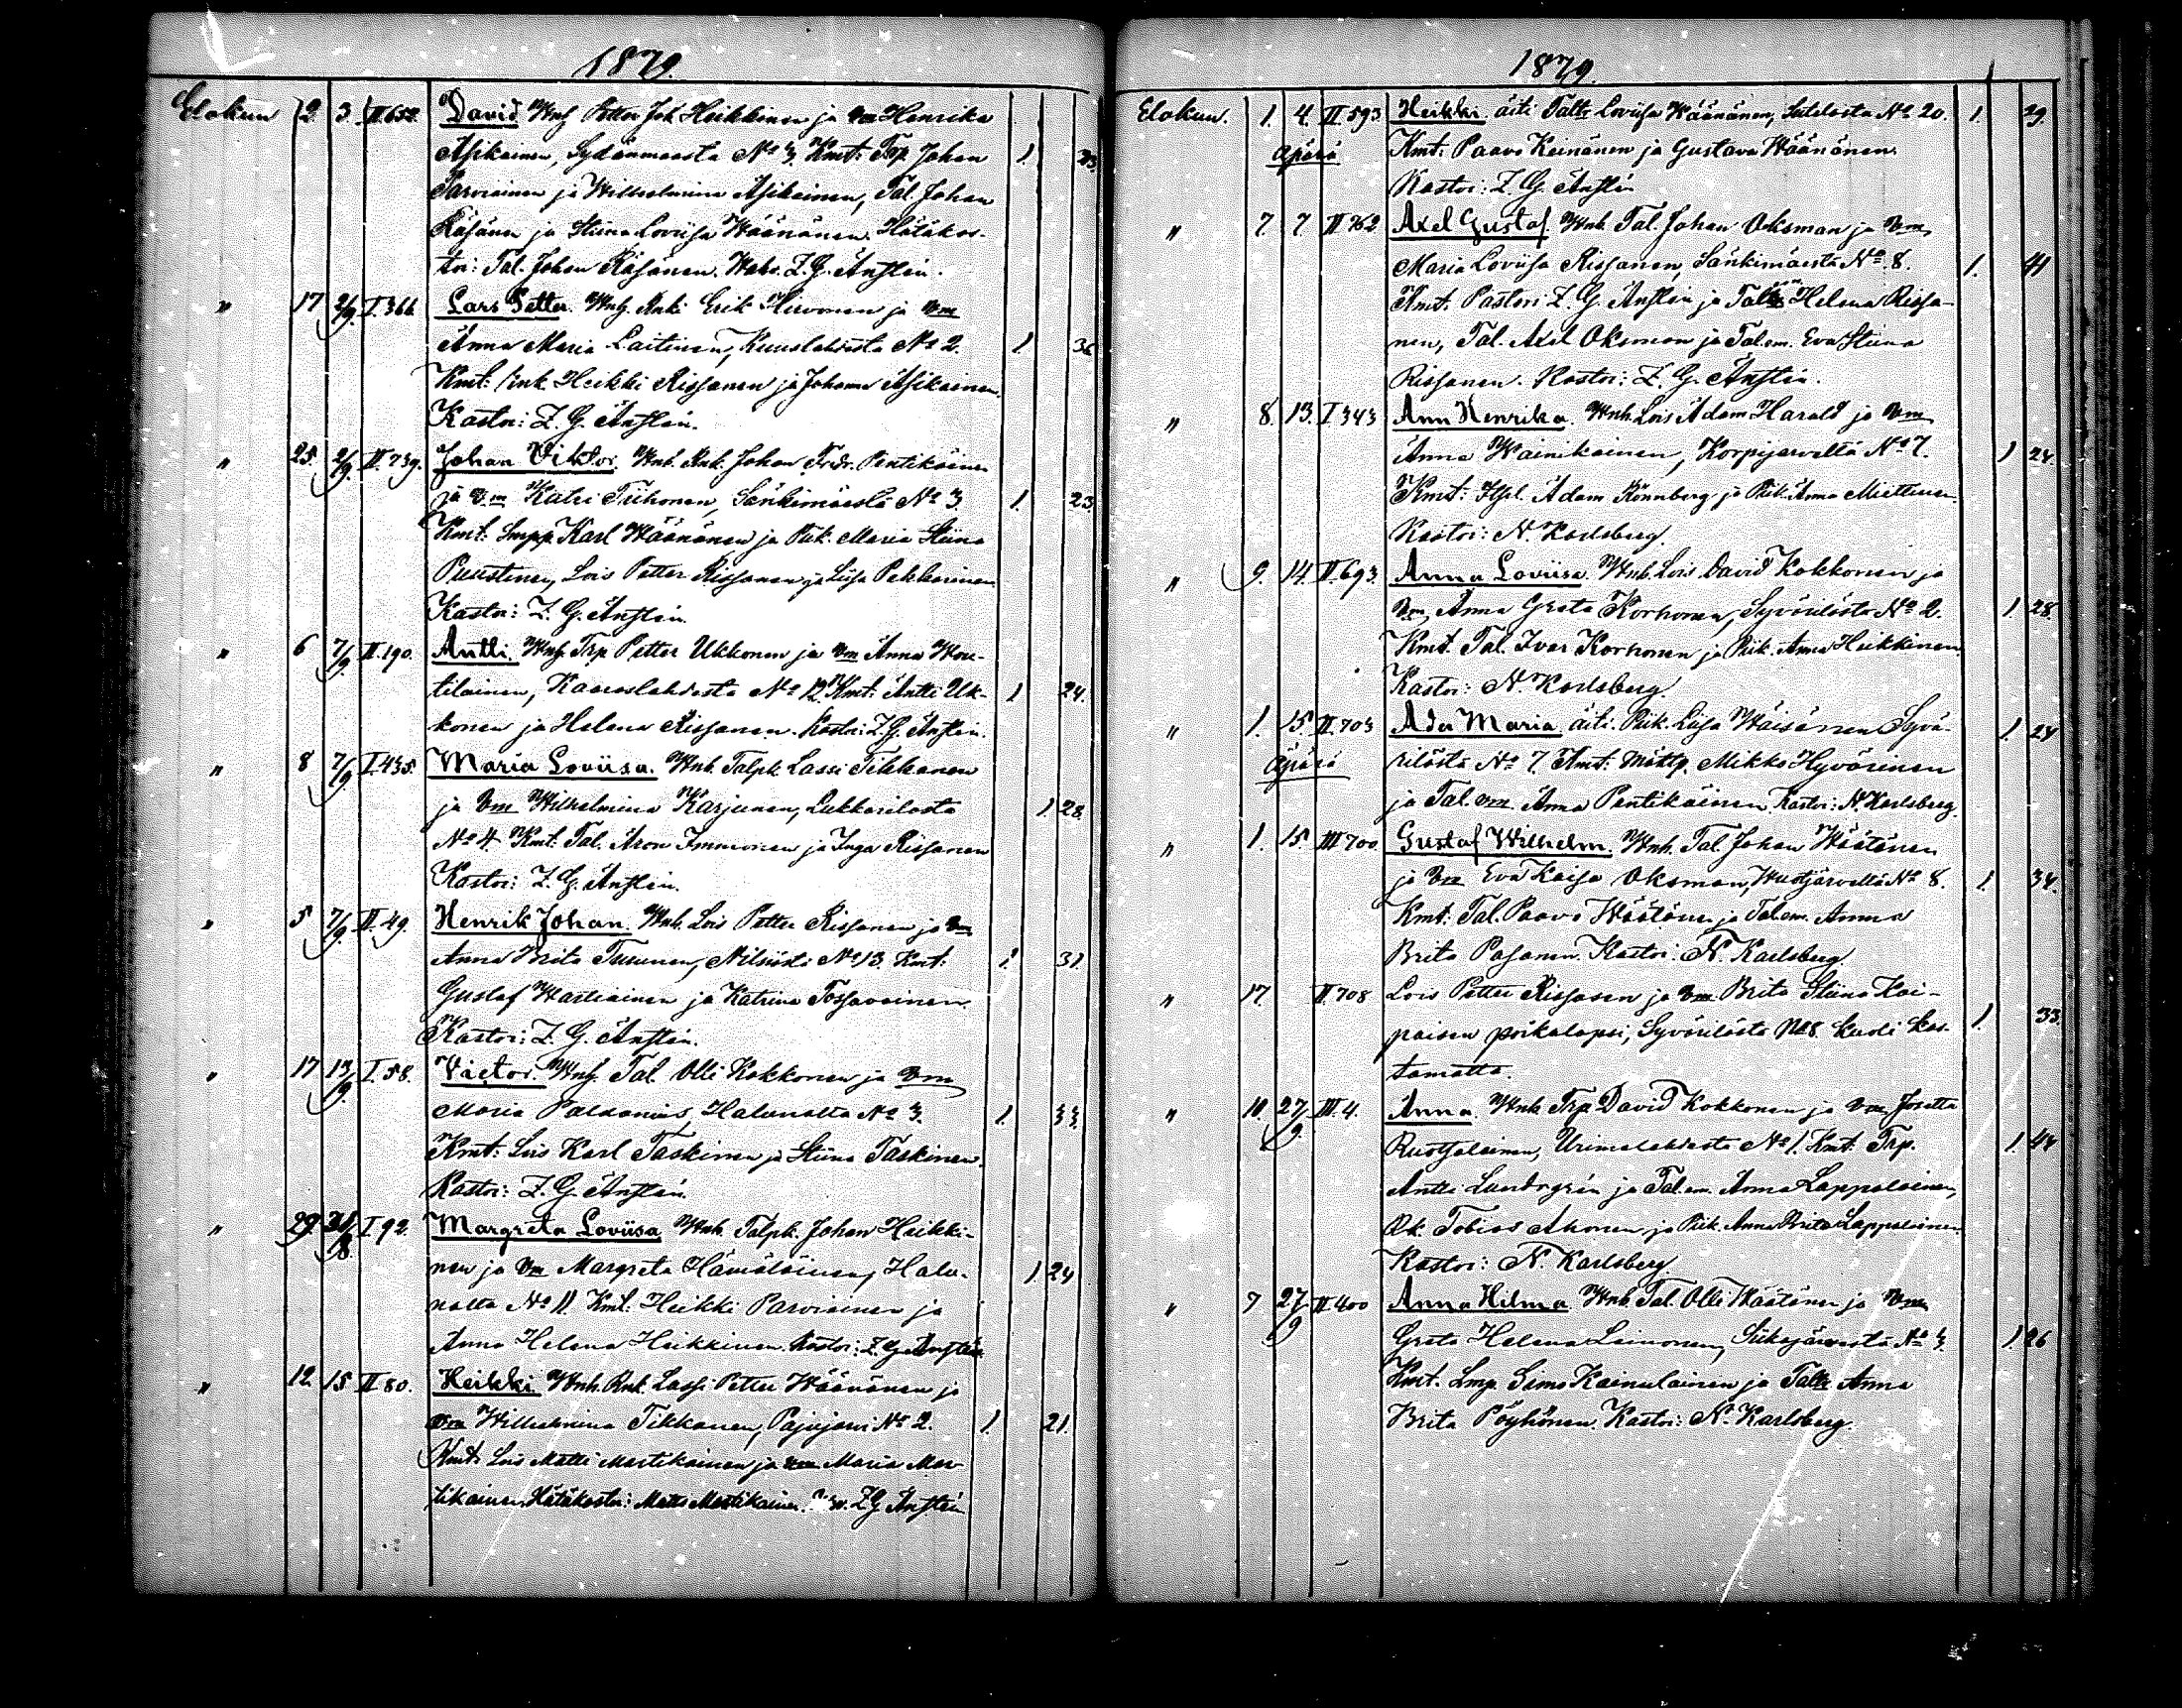 1879.
Elokuu 2. 3. II 652. David. Wnh. Petter Joh. Heikkinen ja Vm Henrika
Asikainen, Sydänmaasta No 3. Kmt: Trp. Johan 1. 23.
Parviainen ja Wilhelmina Asikainen, Tal. Johan
Räsänen ja Stiina Loviisa Wäänänen. Hätäkas-
toi: Tal. Johan Räsänen. Wahv. Z. G. Ånstén.
" 17 2/9. I 366. Lars Petter. Wnh. Erik Hirvonen ja Vm
Anna Maria Laitinen, Kuuslahdesta No 2. 1. 36
Kmt: Heikki Rissanen ja Johanna Asikainen.
Kastoi: Z. G. Ånstén.
" 25. 2/9. II 739. Johan Viktor. Wnh. Rnk. Johan Fredr. Pentikäinen
ja Vm Katri Tiihonen, Sänkimäestä No 3. 1. 23.
Kmt. Karl Wäänänen ja Piik. Maria Stiina
Puustinen, Lois Petter Rissanen ja Liisa Pekkarinen
Kastoi: Z. G. Ånstén.
" 6 7/9. II 190. Antti. Wnh. Trp. Petter Ukkonen ja Vm Anna Wou-
tilainen, Kaaraslahdesta No 12. Kmt: Antti Uk- 1 24.
konen ja Helena Rissanen. Kastoi: Z. G. Ånstén.
" 8 7/9 I 435. Maria Loviisa. Wnh. Talpk. Lassi Tikkanen
ja Vm Wilhelmina Karjunen, Lukkarilasta 1. 28.
No 4. Kmt: Tal. Aron Immonen ja Inga Rissanen
Kastoi: Z. G. Ånstén.
" 5 7/9. II 49. Henrik Johan. Wnh. Lois Petter Rissanen ja Vm
Anna Brita Turunen, Nilsiästä No 13. Kmt: 1. 31.
Gustaf Wartiainen ja Katrina Tossavainen.
Kastoi: Z. G. Ånstén.
" 17 13/9. I 58. Victor. Wnh. Tal. Olli Kokkonen ja Vm
Maria Paldanius, Halunalta No 3. 1. 33.
Kmt: Lois Karl Taskinen ja Stiina Taskinen.
Kastoi: Z. G. Ånstén.
" 29. 31/8. I 92. Margreta Loviisa. Wnh. Talpk. Johan Heikki-
nen ja Vm Margreta Hämäläinen, Halu- 1 24
nalta No 11. Kmt: Heikki Parviainen ja
Anna Helena Heikkinen. Kastoi: Z. G. Ånstén.
" 12. 15 II 80. Heikki. Wnh. Rnk. Lassi Petter Wäänänen ja
Vm Wilhelmina Tikkanen, Pajujärvi No 2. 1. 21.
Kmt: Lois Matti Martikainen ja Vm Maria Mar-
tikainen. Hätäkastoi: Matti Martikainen. Z G Ånstén
1879.
Elokuu. 1. 4. II 593 Heikki. äiti Talt. Loviisa Wäänänen, Sutelasta No 20. 1. 29.
Äpärä Kmt: Paavo Keinänen ja Gustava Wäänänen.
Kastoi: Z. G. Ånstén
" 7 7 II 762 Axel Gustaf. Wnh. Tal. Johan Oksman ja Vm
Maria Loviisa Rissanen, Sänkimäestä No 8. 1. 41
Kmt. Pastori Z. G. Ånstén ja Helena Rissa-
nen, Tal. Axel Oksman ja Tal.em. Eva Stiina
Rissanen. Kastoi: Z. G. Ånstén.
" 8. 13. I 343 Ann Henrika. Wnh. Lois Adam Harald ja Vm
Anna Wainikainen, Korpijärveltä No 7. 1 24.
Kmt: Itsl. Adam Rönnberg ja Piik. Anna Miettinen.
Kastoi: N. Karlsberg.
" 9. 14. II 693. Anna Loviisa. Wnh. Lois David Kokkonen ja
Vm Anna Greta Korhonen, Syvärilästä No 2. 1. 28.
Kmt. Tal. Ivar Korhonen ja Piik. Anna Heikkinen.
Kastoi: N. Karlsberg.
" 1. 15 II 703 Ada Maria. äiti. Piik. Liisa Wäisänen Syvä- 1. 24
Äpärä rilästä No 7. Kmt: Mikko Hyvärinen
ja Tal. em. Anna Pentikäinen. Kastoi: N. Karlsberg.
" 1. 15. III 700. Gustaf Wilhelm. Wnh. Tal. Johan Wäätänen
ja Vm Eva Kaisa Oksman, Wuotjärveltä No 8. 1. 34.
Kmt: Tal. Paavo Wäätänen ja Tal.em. Anna
Brita Pasanen. Kastoi: N. Karlsberg.
" 17. II 708 Lois Petter Rissasen ja Vm Brita Stiina Kai-
paisen poikalapsi, Syvärilästä No 8. kuoli kas- 1. 33.
tamatta.
" 10. 27/9. III 4. Anna. Wnh. Trp. David Kokkonen ja Vm Josetta
Ruotsalainen, Urimolahdesta No 1. Kmt. Trp. 1. 44
Antti Lundgrén ja Tal.em. Anna Lappalainen,
Tobias Ahonen ja Piik. Anna Brita Lappalainen.
Kastoi: N. Karlsberg.
" 7 27/9 II 400 Anna Hilma. Wnh. Tal. Olli Wäätänen ja Vm
Greta Helena Leinonen, Siikajärvestä No 3. 1. 26
Kmt. Lmp. Simo Kainulainen ja Talt. Anna
Brita Pöyhönen. Kastoi: N. Karlsberg.